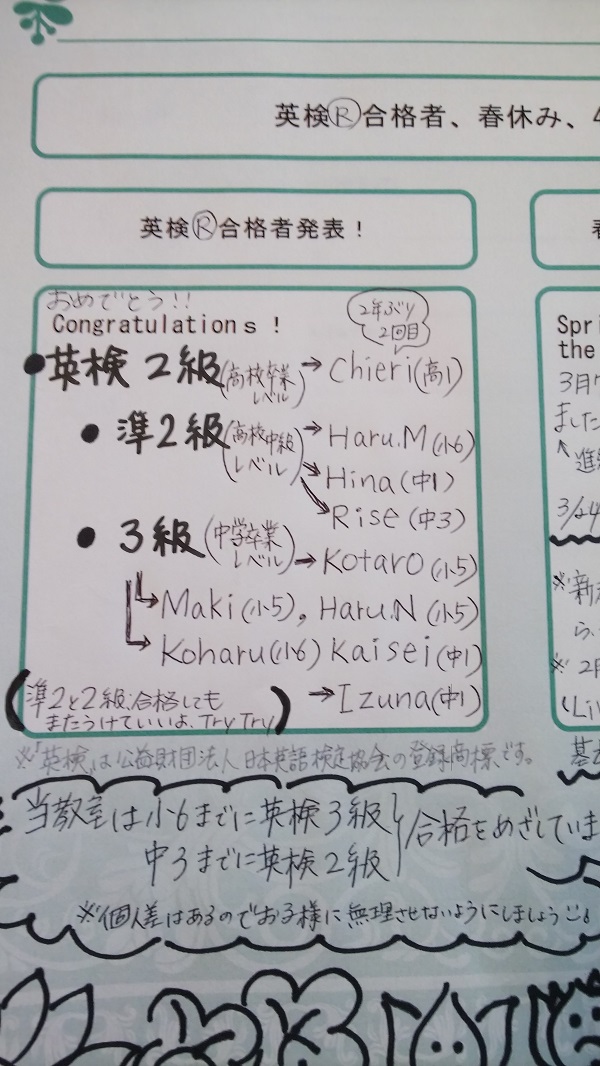 英検Ⓡ合格者、春休み、4
英検Ⓡ合格者発表！
おめでとう!!
Congratulations！
2年ぶり
2回目
●英検２級(高校卒業レベル)→Chieri(高1)
●準２級(高校中級レベル)→Haru.M(小6)
→Hina(中1)
→Rise(中3)
●３級(中学卒業レベル)→Kotaro(小5)
→Maki(小5), Haru.N(小5)
→Koharu(小6) Kaisei(中1)
→Izuna(中1)
(準2と2級:合格しても
またうけていいよ、Try Try)
※「英検」は公益財団法人 日本英語検定協会の登録商標です。
当教室は小6までに英検3級
中3までに英検2級
合格をめざしていま
※個人差はあるのでお子様に無理させないようにしましょう
Spri
the
3月
ました
↑進
3/24
※新
ら、
※2月
(Li
基